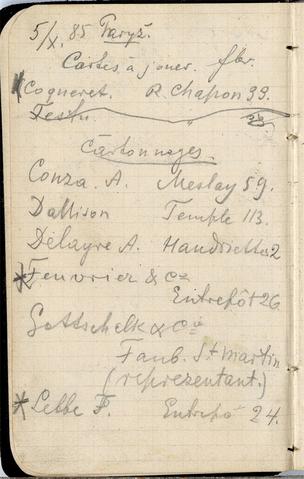 5/X. 85 Paryż.
Cartes à jouer. fbr.
Coqueret. R. Chapon 33.
Testu.
Cartonnages.
Conza. A. Meslay 59.
Dallison Temple 113.
Delayre A. Haudriettes 2
Feuvrier & Cie
Entrepôt 26
Gottschalk & Cie
Faub. St Martin
(reprezentant.)
Lebbe F. Entrepô 24.